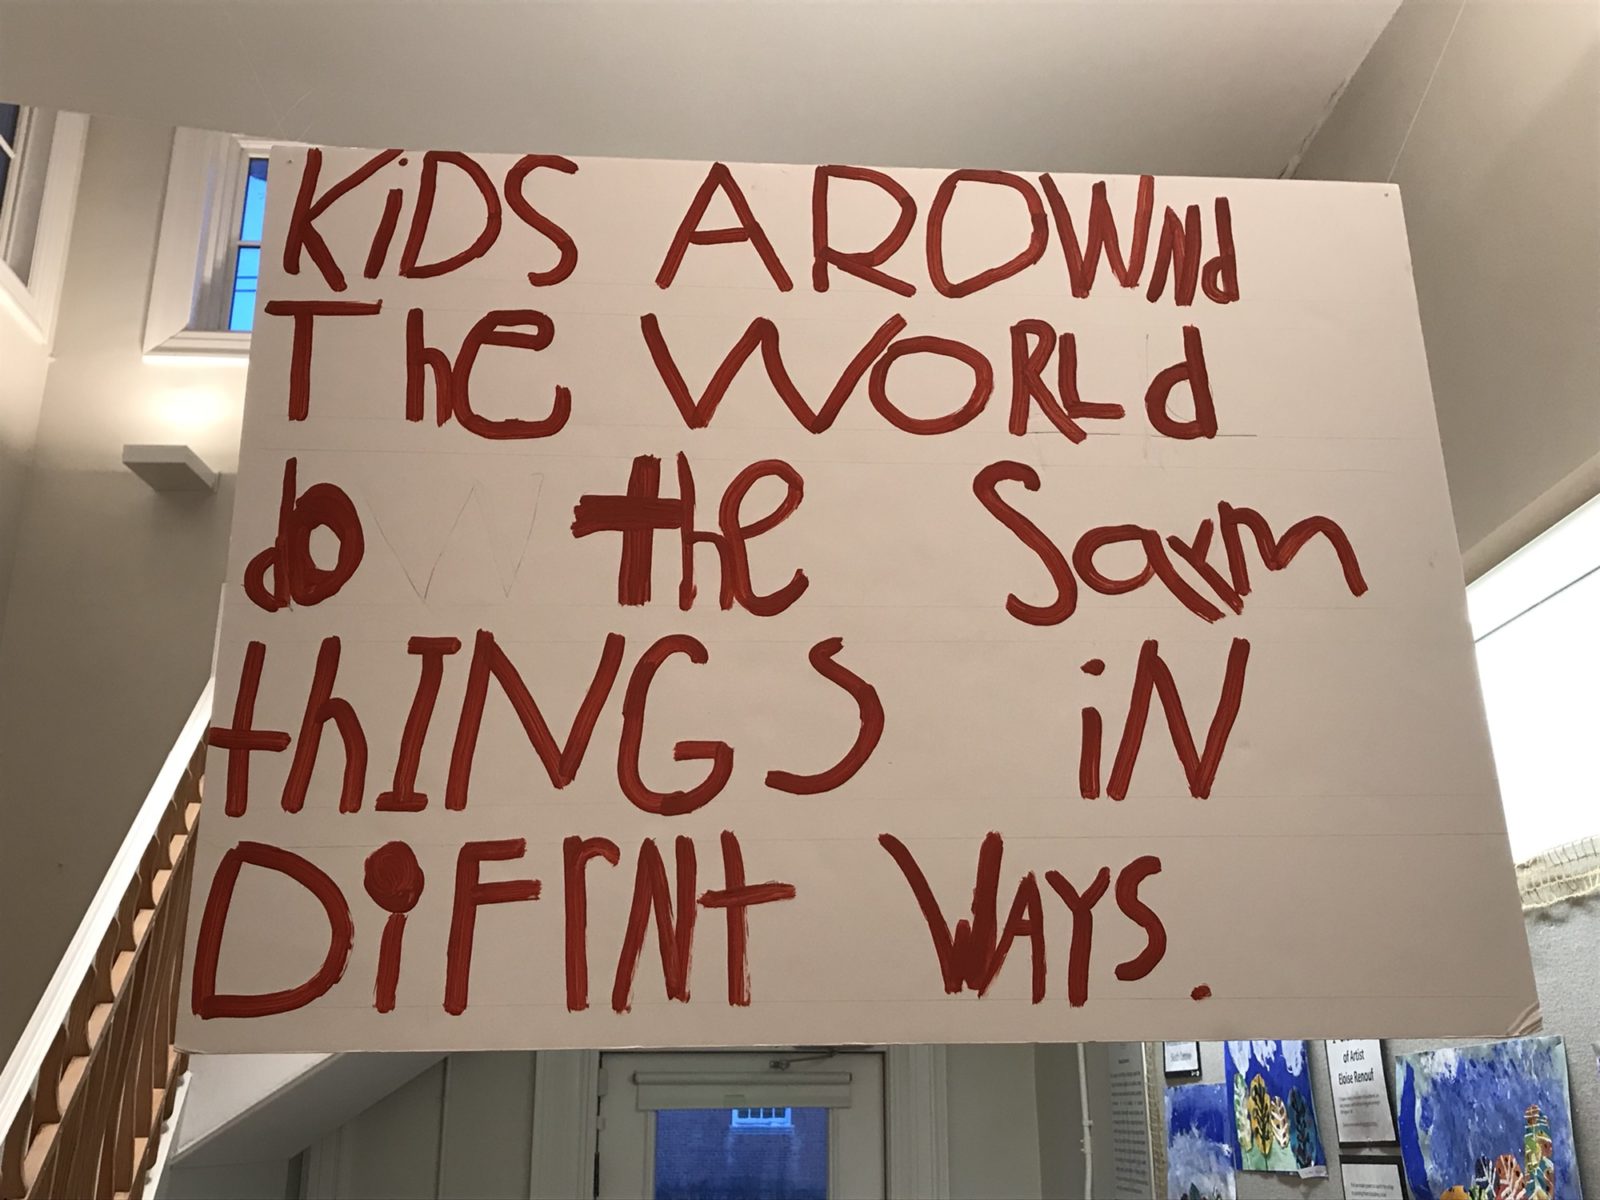 KiDS AROWNd
The WORLd
do the Sarm
thINGS iN
DiFrNt WAYS.
of Artist
Eloise Renouf